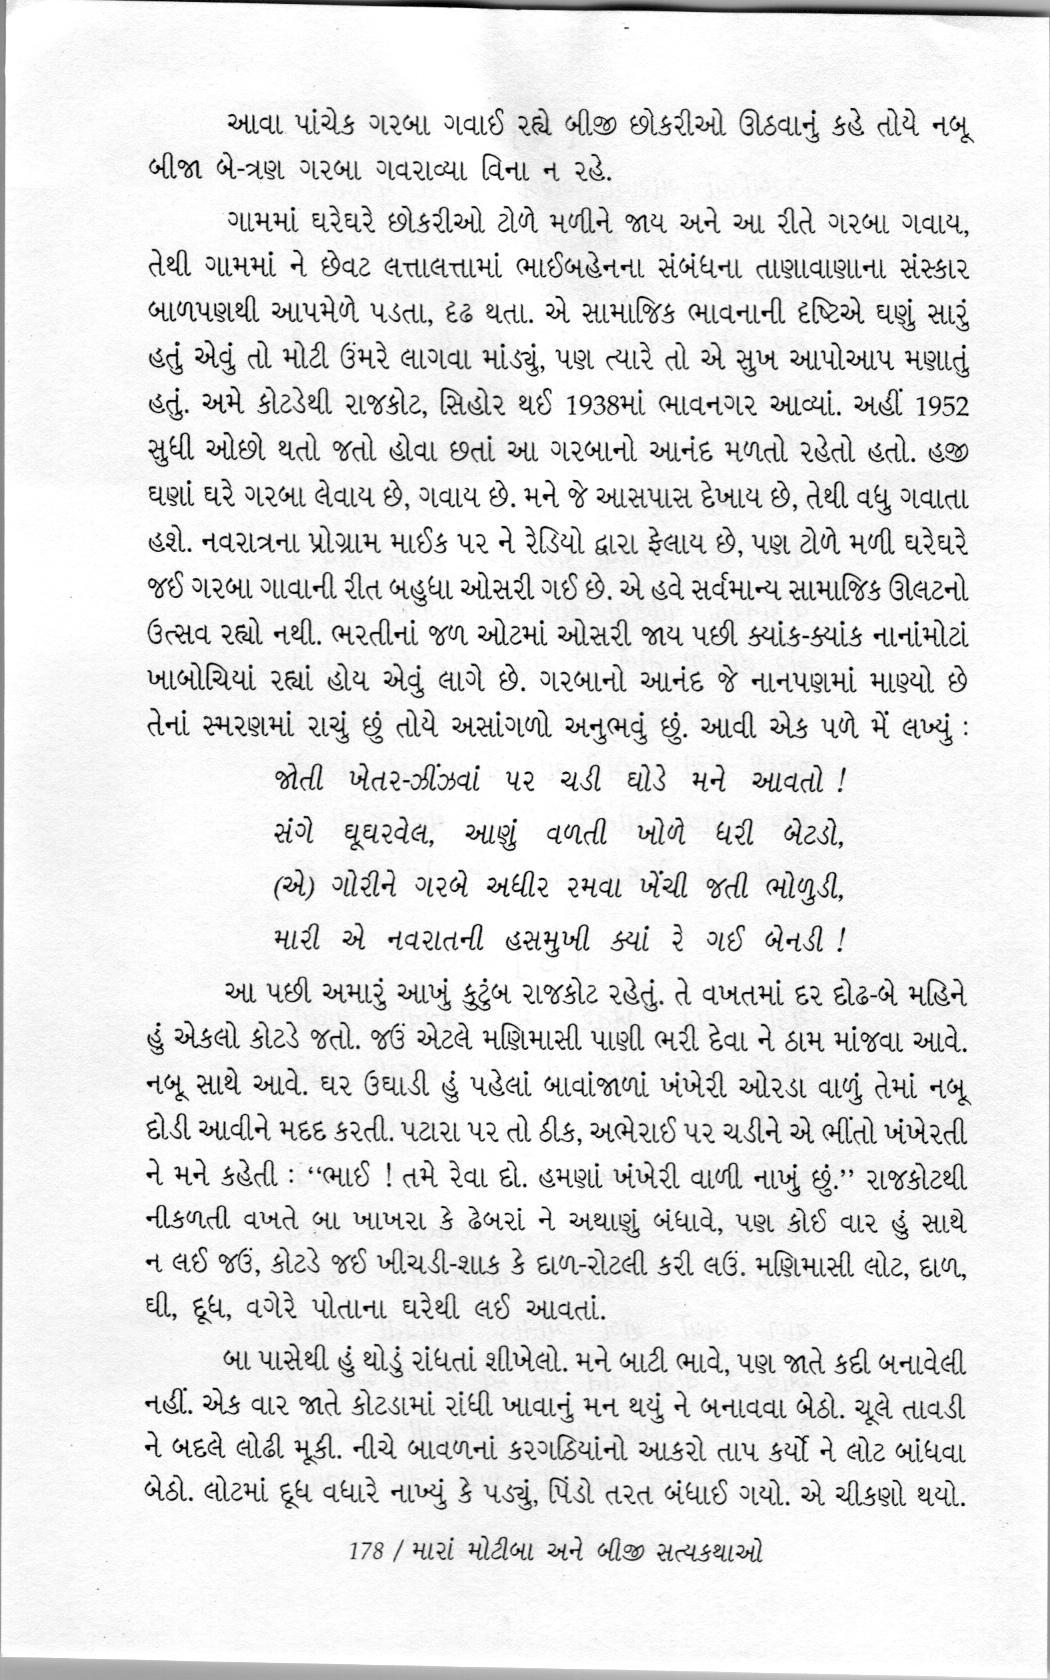 આવા પાંચેક ગરબા ગવાઈ રહ્યે બીજી છોકરીઓ ઊઠવાનું કહે તોયે નબૂ
બીજા બે-ત્રણ ગરબા ગવરાવ્યા વિના ન રહે.
ગામમાં ઘરેઘરે છોકરીઓ ટોળે મળીને જાય અને આ રીતે ગરબા ગવાય,
તેથી ગામમાં ને છેવટ લત્તાલત્તામાં ભાઈબહેનના સંબંધના તાણાવાણાના સંસ્કાર
બાળપણથી આપમેળે પડતા, દૃઢ થતા. એ સામાજિક ભાવનાની દૃષ્ટિએ ઘણું સારું
હતું એવું તો મોટી ઉંમરે લાગવા માંડ્યું, પણ ત્યારે તો એ સુખ આપોઆપ મણાતું
હતું. અમે કોટડેથી રાજકોટ, સિહોર થઈ 1938માં ભાવનગર આવ્યાં. અહીં 1952
સુધી ઓછો થતો જતો હોવા છતાં આ ગરબાનો આનંદ મળતો રહેતો હતો. હજી
ઘણાં ઘરે ગરબા લેવાય છે, ગવાય છે. મને જે આસપાસ દેખાય છે, તેથી વધુ ગવાતા
હશે. નવરાત્રના પ્રોગ્રામ માઈક પર ને રેડિયો દ્વારા ફેલાય છે, પણ ટોળે મળી ઘરેઘરે
જઈ ગરબા ગાવાની રીત બહુધા ઓસરી ગઈ છે. એ હવે સર્વમાન્ય સામાજિક ઊલટનો
ઉત્સવ રહ્યો નથી. ભરતીનાં જળ ઓટમાં ઓસરી જાય પછી ક્યાંક-ક્યાંક નાનાંમોટાં
ખાબોચિયાં રહ્યાં હોય એવું લાગે છે. ગરબાનો આનંદ જે નાનપણમાં માણ્યો છે
તેનાં સ્મરણમાં રાચું છું તોયે અસાંગળો અનુભવું છું. આવી એક પળે મેં લખ્યું :
જોતી ખેતર-ઝીંઝવાં પર ચડી ઘોડે મને આવતો !
સંગે ઘૂઘરવેલ, આણું વળતી ખોળે ધરી બેટડો,
(એ) ગોરીને ગરબે અધીર રમવા ખેંચી જતી ભોળુડી,
મારી એ નવરાતની હસમુખી ક્યાં રે ગઈ બેનડી !
આ પછી અમારું આખું કુટુંબ રાજકોટ રહેતું. તે વખતમાં દર દોઢ-બે મહિને
હું એકલો કોટડે જતો. જઉં એટલે મણિમાસી પાણી ભરી દેવા ને ઠામ માંજવા આવે.
નબૂ સાથે આવે. ઘર ઉઘાડી હું પહેલાં બાવાંજાળાં ખંખેરી ઓરડા વાળું તેમાં નબૂ
દોડી આવીને મદદ કરતી. પટારા પર તો ઠીક, અભેરાઈ પર ચડીને એ ભીંતો ખંખેરતી
ને મને કહેતી : “ભાઈ ! તમે રેવા દો. હમણાં ખંખેરી વાળી નાખું છું.” રાજકોટથી
નીકળતી વખતે બા ખાખરા કે ઢેબરાં ને અથાણું બંધાવે, પણ કોઈ વાર હું સાથે
ન લઈ જઉં, કોટડે જઈ ખીચડી-શાક કે દાળ-રોટલી કરી લઉં. મણિમાસી લોટ, દાળ,
ઘી, દૂધ, વગેરે પોતાના ઘરેથી લઈ આવતાં.
બા પાસેથી હું થોડું રાંધતાં શીખેલો. મને બાટી ભાવે, પણ જાતે કદી બનાવેલી
નહીં. એક વાર જાતે કોટડામાં રાંધી ખાવાનું મન થયું ને બનાવવા બેઠો. ચૂલે તાવડી
ને બદલે લોઢી મૂકી. નીચે બાવળનાં કરગઠિયાંનો આકરો તાપ કર્યો ને લોટ બાંધવા
બેઠો. લોટમાં દૂધ વધારે નાખ્યું કે પડ્યું, પિંડો તરત બંધાઈ ગયો. એ ચીકણો થયો.
178 / મારાં મોટીબા અને બીજી સત્યકથાઓ